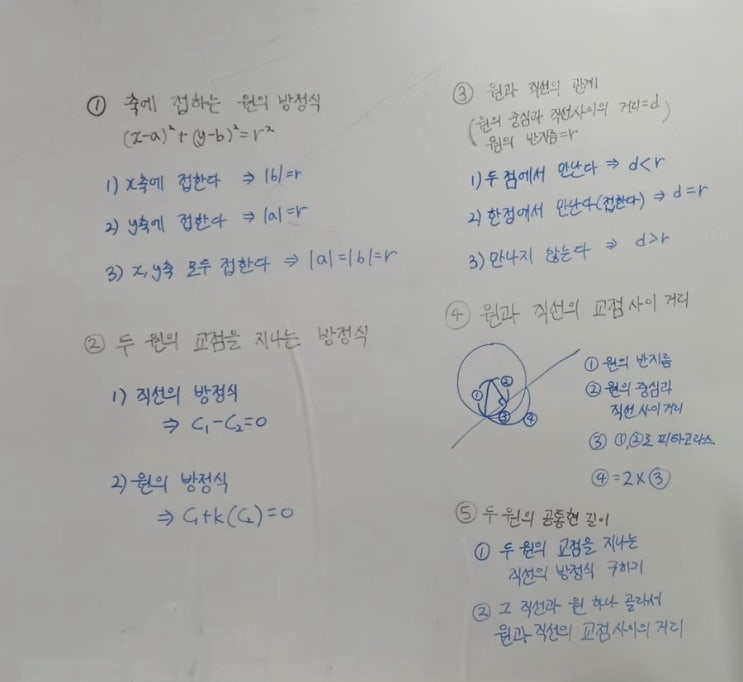 ① 축에 접하는 원의 방정식
(x-a)²+(y-b)²=r²
1) x축에 접한다 ⇒ |b|=r
2) y축에 접한다 ⇒ |a|=r
3) x,y축 모두 접한다 ⇒ |a|=|b|=r
② 두 원의 교점을 지나는 방정식
1) 직선의 방정식
⇒ C₁-C₂=0
2) 원의 방정식
⇒ C₁+k(C₂)=0
③ 원과 직선의 관계
(원의 중심과 직선사이의 거리=d
원의 반지름=r)
1) 두 점에서 만난다 ⇒ d<r
2) 한점에서 만난다(접한다) ⇒ d=r
3) 만나지 않는다 ⇒ d>r
④ 원과 직선의 교점사이 거리
① ② ③ ④
① 원의 반지름
② 원의 중심과
직선사이거리
③ ①,②로 피타고라스
④=2×③
⑤ 두 원의 공통현 길이
① 두 원의 교점을 지나는
직선의 방정식 구하기
② 그 직선과 원 하나 골라서
원과 직선의 교점사이의 거리